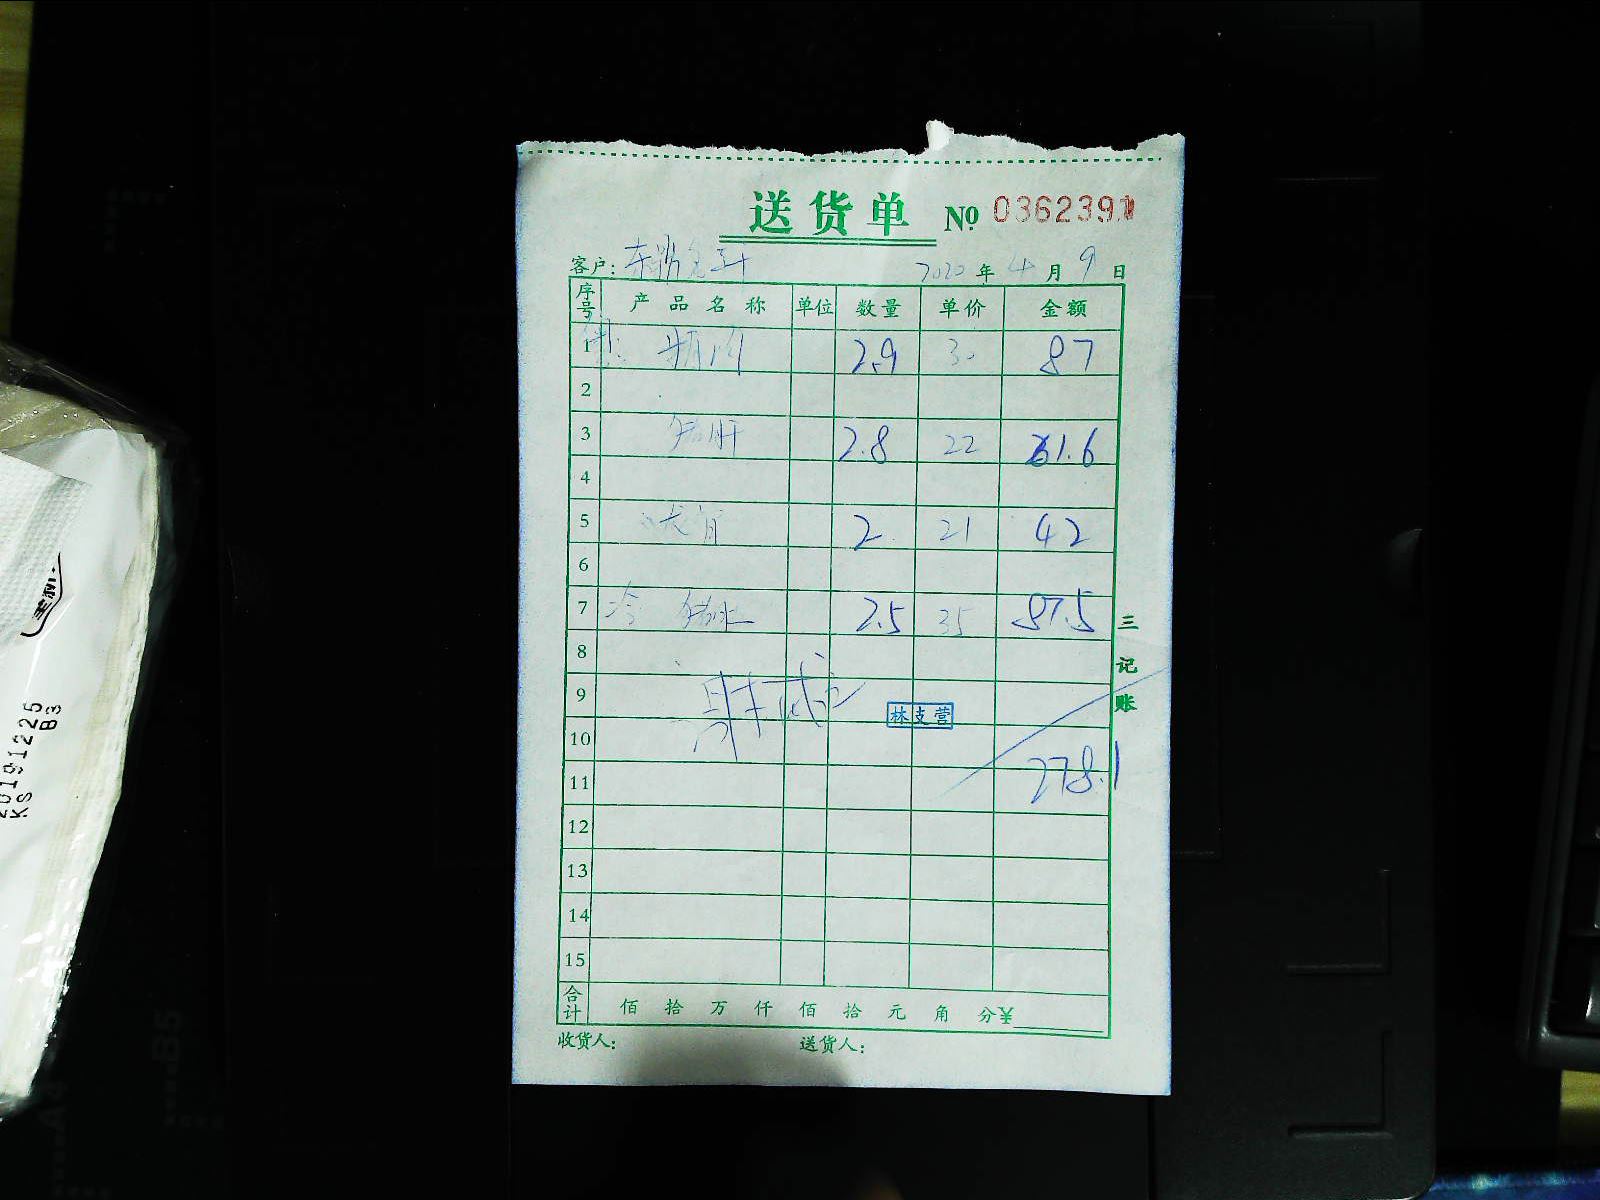 送货单 № 0362391
客户: 2020 年 4 月 9 日
序号 产品名称 单位 数量 单价 金额
1 2.9 30 87
2
3 猪肝 2.8 22 61.6
4
5 2 21 42
6
7 冷 2.5 35 87.5
8
9
林支营
10
278.1
11
12
13
14
15
合计 佰 拾 万 仟 佰 拾 元 角 分 ¥
收货人: 送货人:
三记账
20191225
KS B3
B5